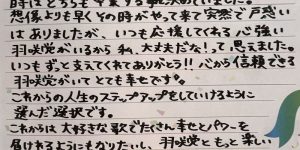 時はどちらも
想像よりも早くその時がやって来て突然で戸惑い
はありましたが、いつも応援してくれる心強い
羽咲党がいるから私、大丈夫だな！って思えました。
いつもずっと支えてくれてありがとう!!心から信頼できる
羽咲党がいてとても幸せです。
これからの人生のステップアップをしていけるように
選んだ選択です。
これからは大好きな歌でたくさん幸せとパワーを
届けれるようにもなりたいし、羽咲党ともっと楽しい